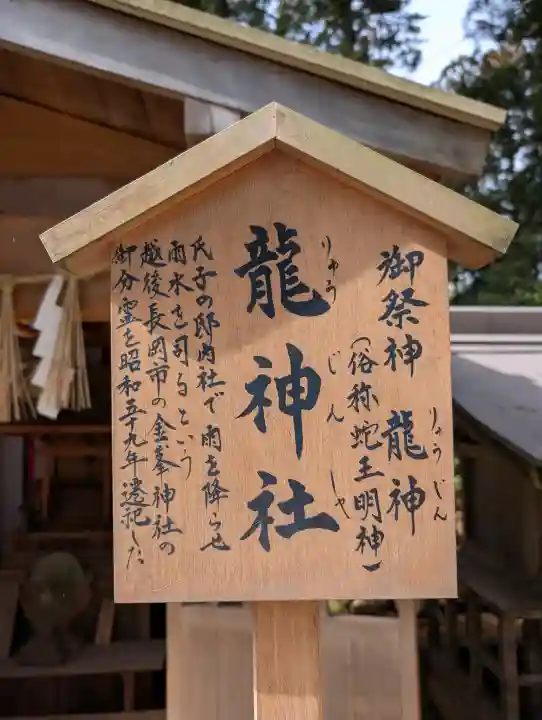 御祭神 龍神
りゅうじん
(俗称蛇王明神)
龍神社
りゅうじんしゃ
氏子の邸内社で雨を降らせ
雨水を司るという
越後長岡市の金峯神社の
御分霊を昭和五十九年遷祀した